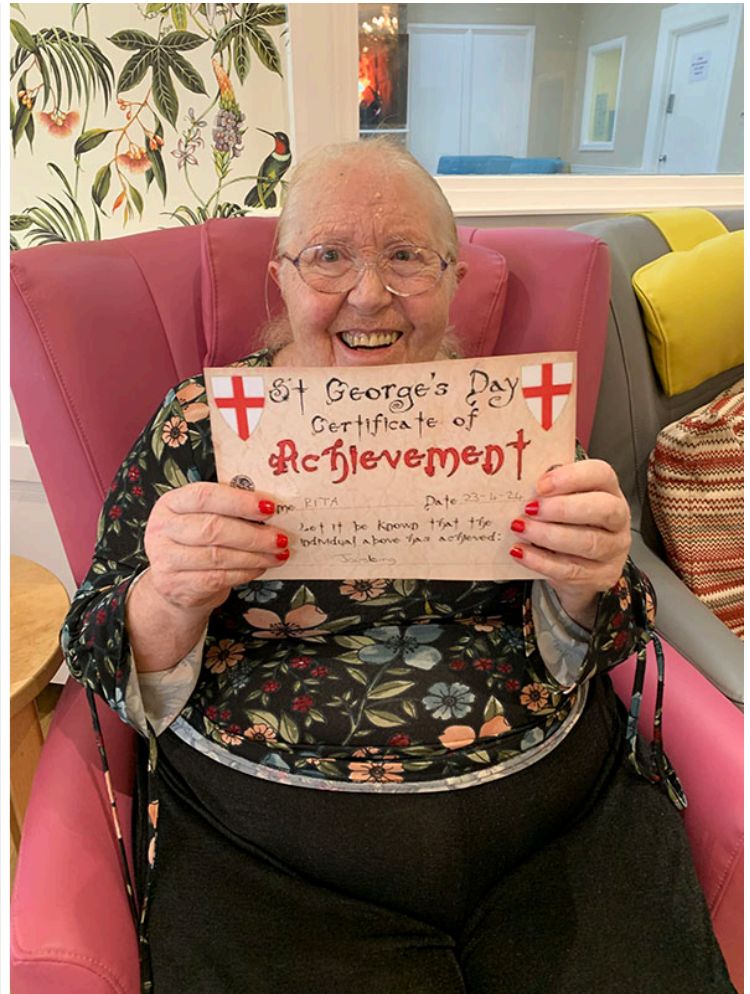 St George's Day
Certificate of
Achievement
me RITA Date 23-4-24
Let it be known that the
individual above has achieved: